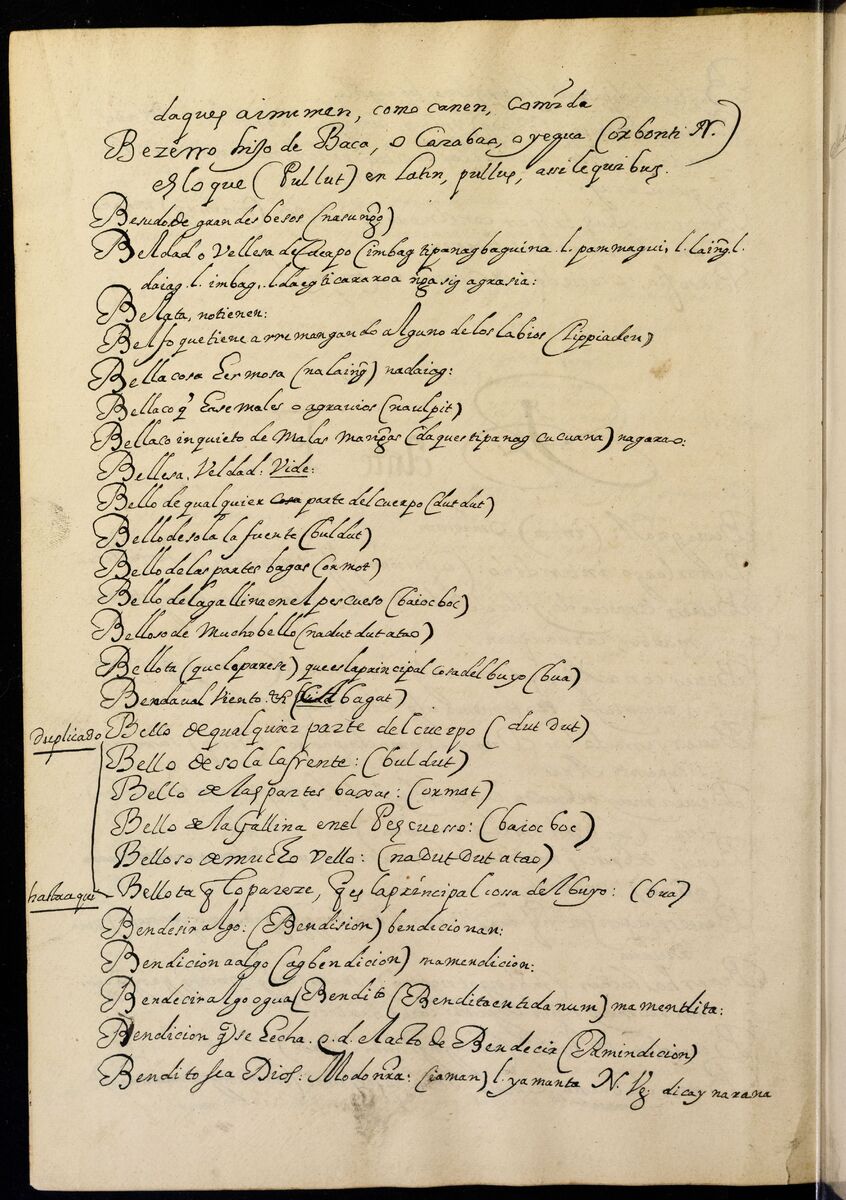 daques aimimen, como canen, Comida
Bezerro hijo de Baca, o Carabao, o yegua (orbon ti N.)
es lo que (Pullut) en Latin, pullus, assi le quibus.
Besudo de grandes besos (nasungõ)
Beldad o Vellesa del Cuerpo (imbag tipanagbaguina. l. pammagui, l. laing̃. l.
daiag. l. imbag, l. daegti cararoa ng̃a sig agrasia:
Belata, notienen:
Belfo que tiene arremangando alguno de los labios (lippiaden)
Bella cosa hermosa (nalaing̃) nadaiag:
Bellaco q̃ hase males o agravios (naulpit)
Bellaco inquieto de Malas mang̃as (daques tipanag cucuana) nagarao:
Bellesa, Veldad: Vide:
Bello de qualquier cosa parte del cuerpo (dutdut)
Bello de sola la fuente (buldut)
Bello de las partes bagas (ormot)
Bello de la gallina en el pescueso (baiocboc)
Belloso de Mucho bello (nadutdutatao)
Bellota (que lo parese) que es la principal cosa del buyo (bua)
Bendaval viento (bagat)
duplicado Bello de qualquier parte del cuerpo (dut Dut)
Bello de sola la frente: (buldut)
Bello de las partes baxas: (ormot)
Bello de la Gallina en el Pescuesso: (baiocboc)
Belloso de mucho Vello: (naDutDutatao)
hasta aqui Bellota q̃ lo pareze, q̃ es la principal cossa del buyo: (bua)
Bendesir algo: (Bendision) bendicionan:
Bendicion a algo (agbendicion) mamendicion:
Bendecir algo ogua (Bendito (Benditaentidanum) mamendita:
Bendicion q̃ se hecha. o. d. el Acto de Bendecir (Pmindicion)
Bendito sea Dios: Modo nr̃a: (iaman) l. yamanta N. Vg̃ dicay naxana